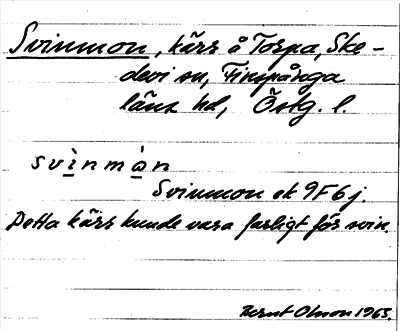 Svinmon, kärr å Torpa, Ske-
devi sn, Finspånga
läns hd, Östg. l.
svìnmòn
Svinmon ek 9F6j.
Detta kärr kunde vara farligt för svin.
Bernt Olsson 1965.